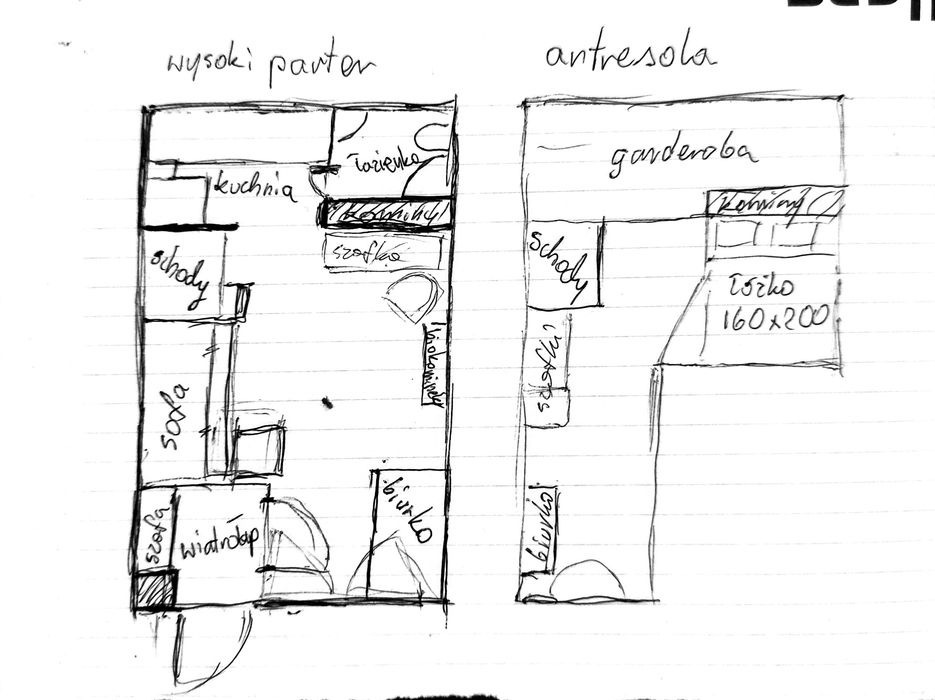 wysoki parter
antresola
łazienka
kuchnia
kominy
szafka
schody
biokominek
sofa
biurko
szafa
wiatrołap
garderoba
kominy
schody
łóżko
160x200
szafki
biurko